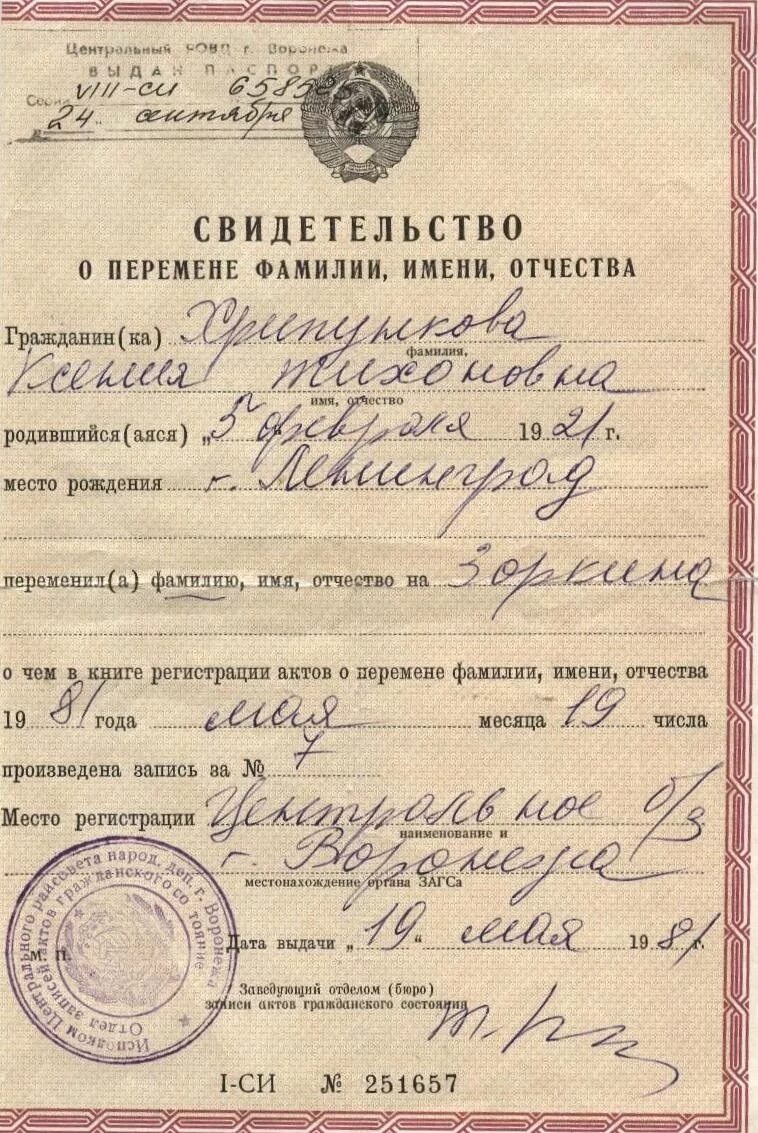 Центральный РОВД г. Воронежа
ВЫДАН ПАСПОРТ
Серия VIII-СИ 6585
24 сентября
СВИДЕТЕЛЬСТВО
О ПЕРЕМЕНЕ ФАМИЛИИ, ИМЕНИ, ОТЧЕСТВА
Гражданин(ка) Хрипункова
фамилия,
Ксения Тихоновна
имя, отчество
родившийся(аяся) „5 февраля 1921 г.
место рождения г. Ленинград
переменил(а) фамилию, имя, отчество на Зоркина
о чем в книге регистрации актов о перемене фамилии, имени, отчества
1981 года мая месяца 19 числа
произведена запись за № 7
Место регистрации Центральное б/з
наименование и
г. Воронежа
местонахождение органа ЗАГСа
Дата выдачи „19“ мая 1981 г.
М. П.
Заведующий отделом (бюро)
записи актов гражданского состояния
Исполком Центрального райсовета народ. деп. г. Воронежа
Отдел записей актов гражданского состояние
I-СИ № 251657